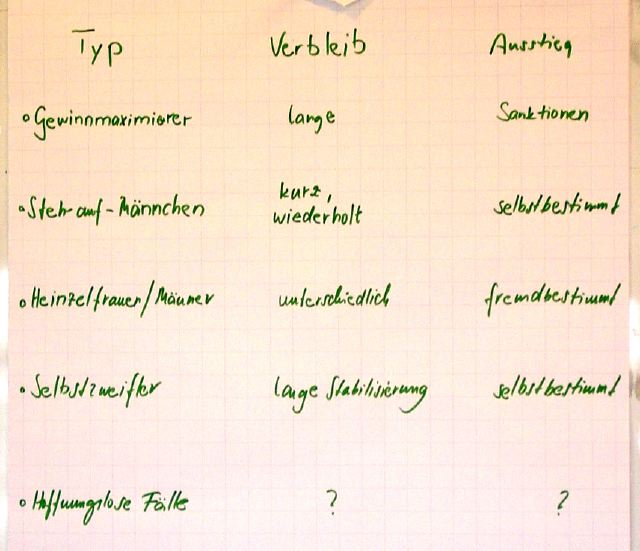 Typ Verbleib Ausstieg
• Gewinnmaximierer lange Sanktionen
• Steh-auf-Männchen kurz, selbstbestimmt
wiederholt
• Heinzelfrauen/Männer unterschiedlich fremdbestimmt
• Selbstzweifler lange Stabilisierung selbstbestimmt
• Hoffnungslose Fälle ? ?